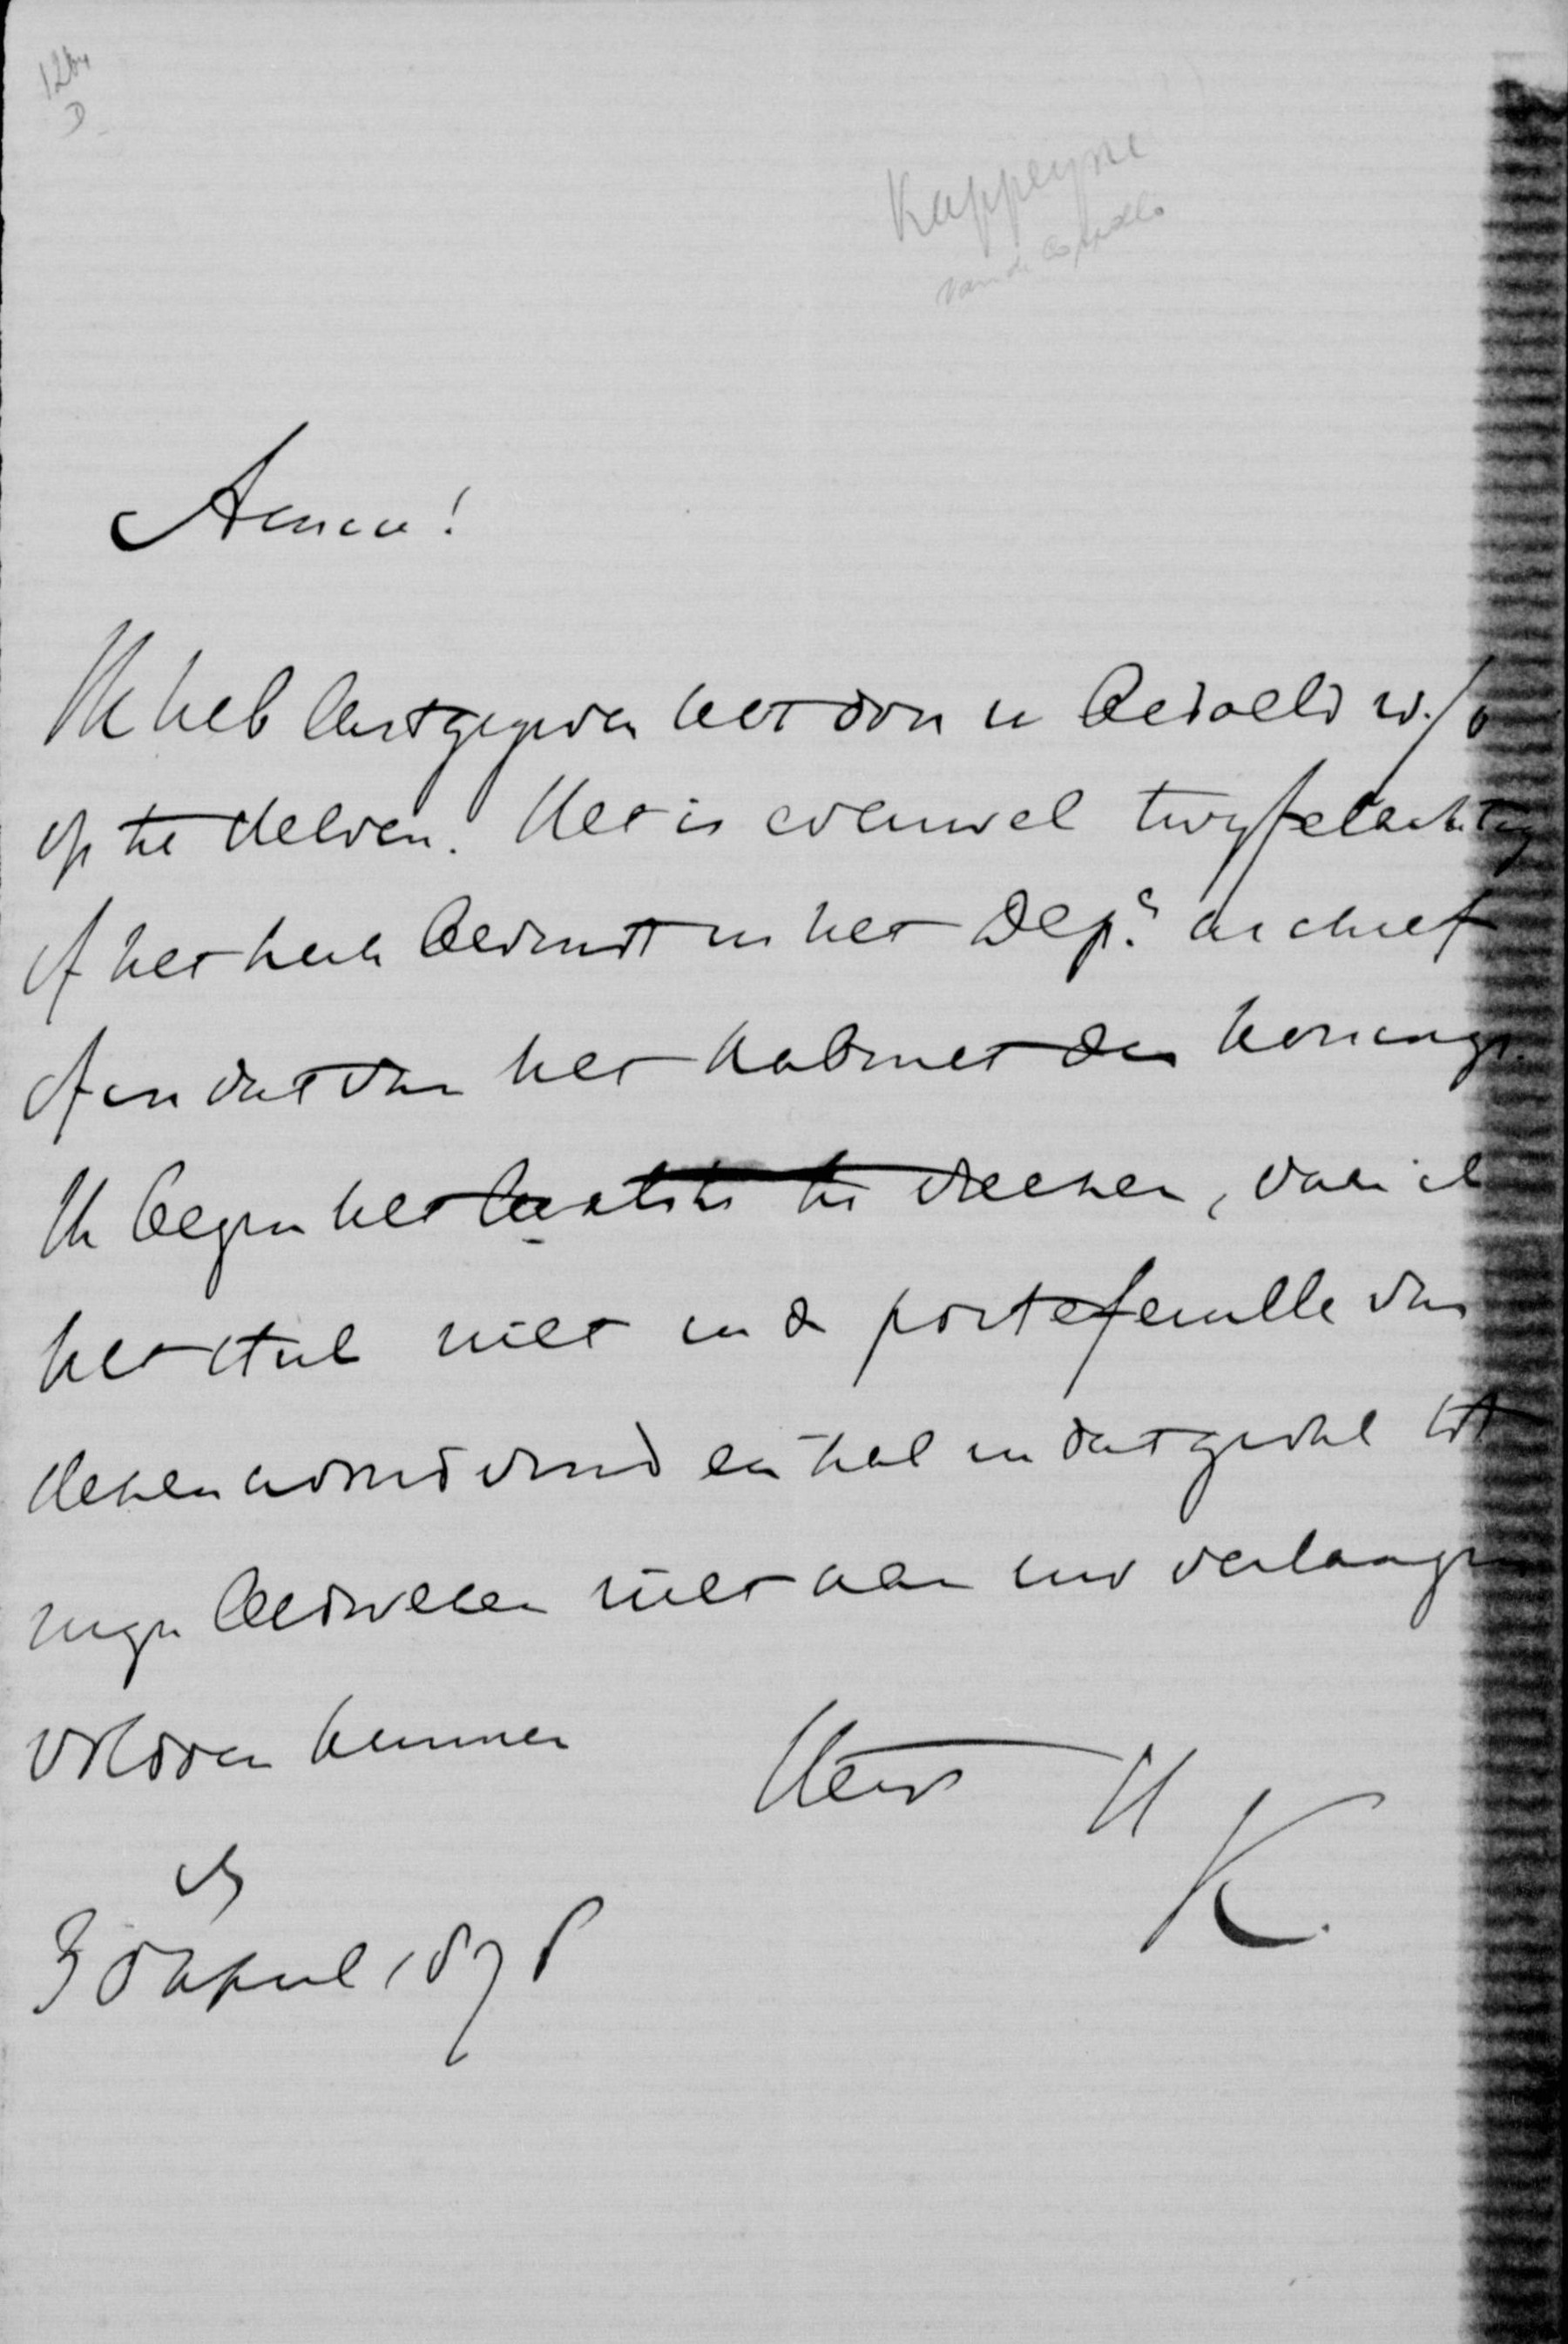 126b
D
Kappeyne
van de Coppello
Amice!
Ik heb last gegeven het door u bedoeld w./o
op te delven. Het is evenwel twijfelachtig
of het zich bevindt in het Dep.s archief
of in dat van het Kabinet des Konings.
Ik begin het laatste te vreezen, daar ik
het stuk niet in de portefeuille van
dezen avond vond en zal in dat geval tot
mijn leedwezen niet aan uw verlangen
voldoen kunnen
tt
K.
30 April 1878